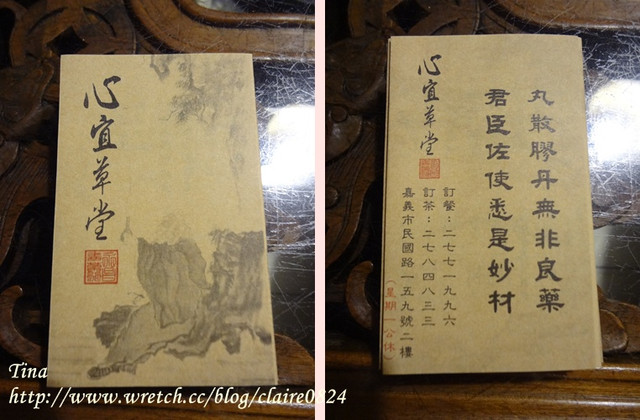 心宜草堂
丸散膠丹無非良藥
君臣佐使悉是妙材
心宜草堂
訂餐：二七七一九九六
訂茶：二七八四八三三
嘉義市民國路一五九號二樓
（星期一公休）
Tina
http://www.wretch.cc/blog/claire0824